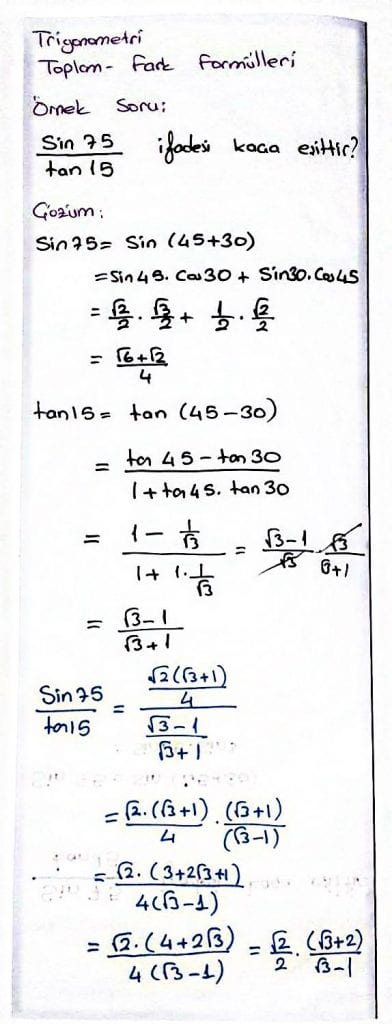 Trigonometri
Toplam - Fark Formülleri
Örnek Soru:
Sin 75 / tan 15 ifadesi kaça eşittir?
Çözüm:
Sin 75 = Sin (45+30)
= Sin 45. Cos 30 + Sin 30. Cos 45
= √2/2 . √3/2 + 1/2 . √2/2
= (√6+√2)/4
tan 15 = tan (45-30)
= (tan 45 - tan 30)/(1 + tan 45. tan 30)
= (1 - 1/√3)/(1 + 1. 1/√3) = (√3-1)/√3 . √3/(√3+1)
= (√3-1)/(√3+1)
Sin 75 / tan 15 = (√2(√3+1)/4)/((√3-1)/(√3+1))
= √2.(√3+1)/4 . (√3+1)/(√3-1)
= √2.(3+2√3+1)/4(√3-1)
= √2.(4+2√3)/4(√3-1) = √2/2 . (√3+2)/(√3-1)